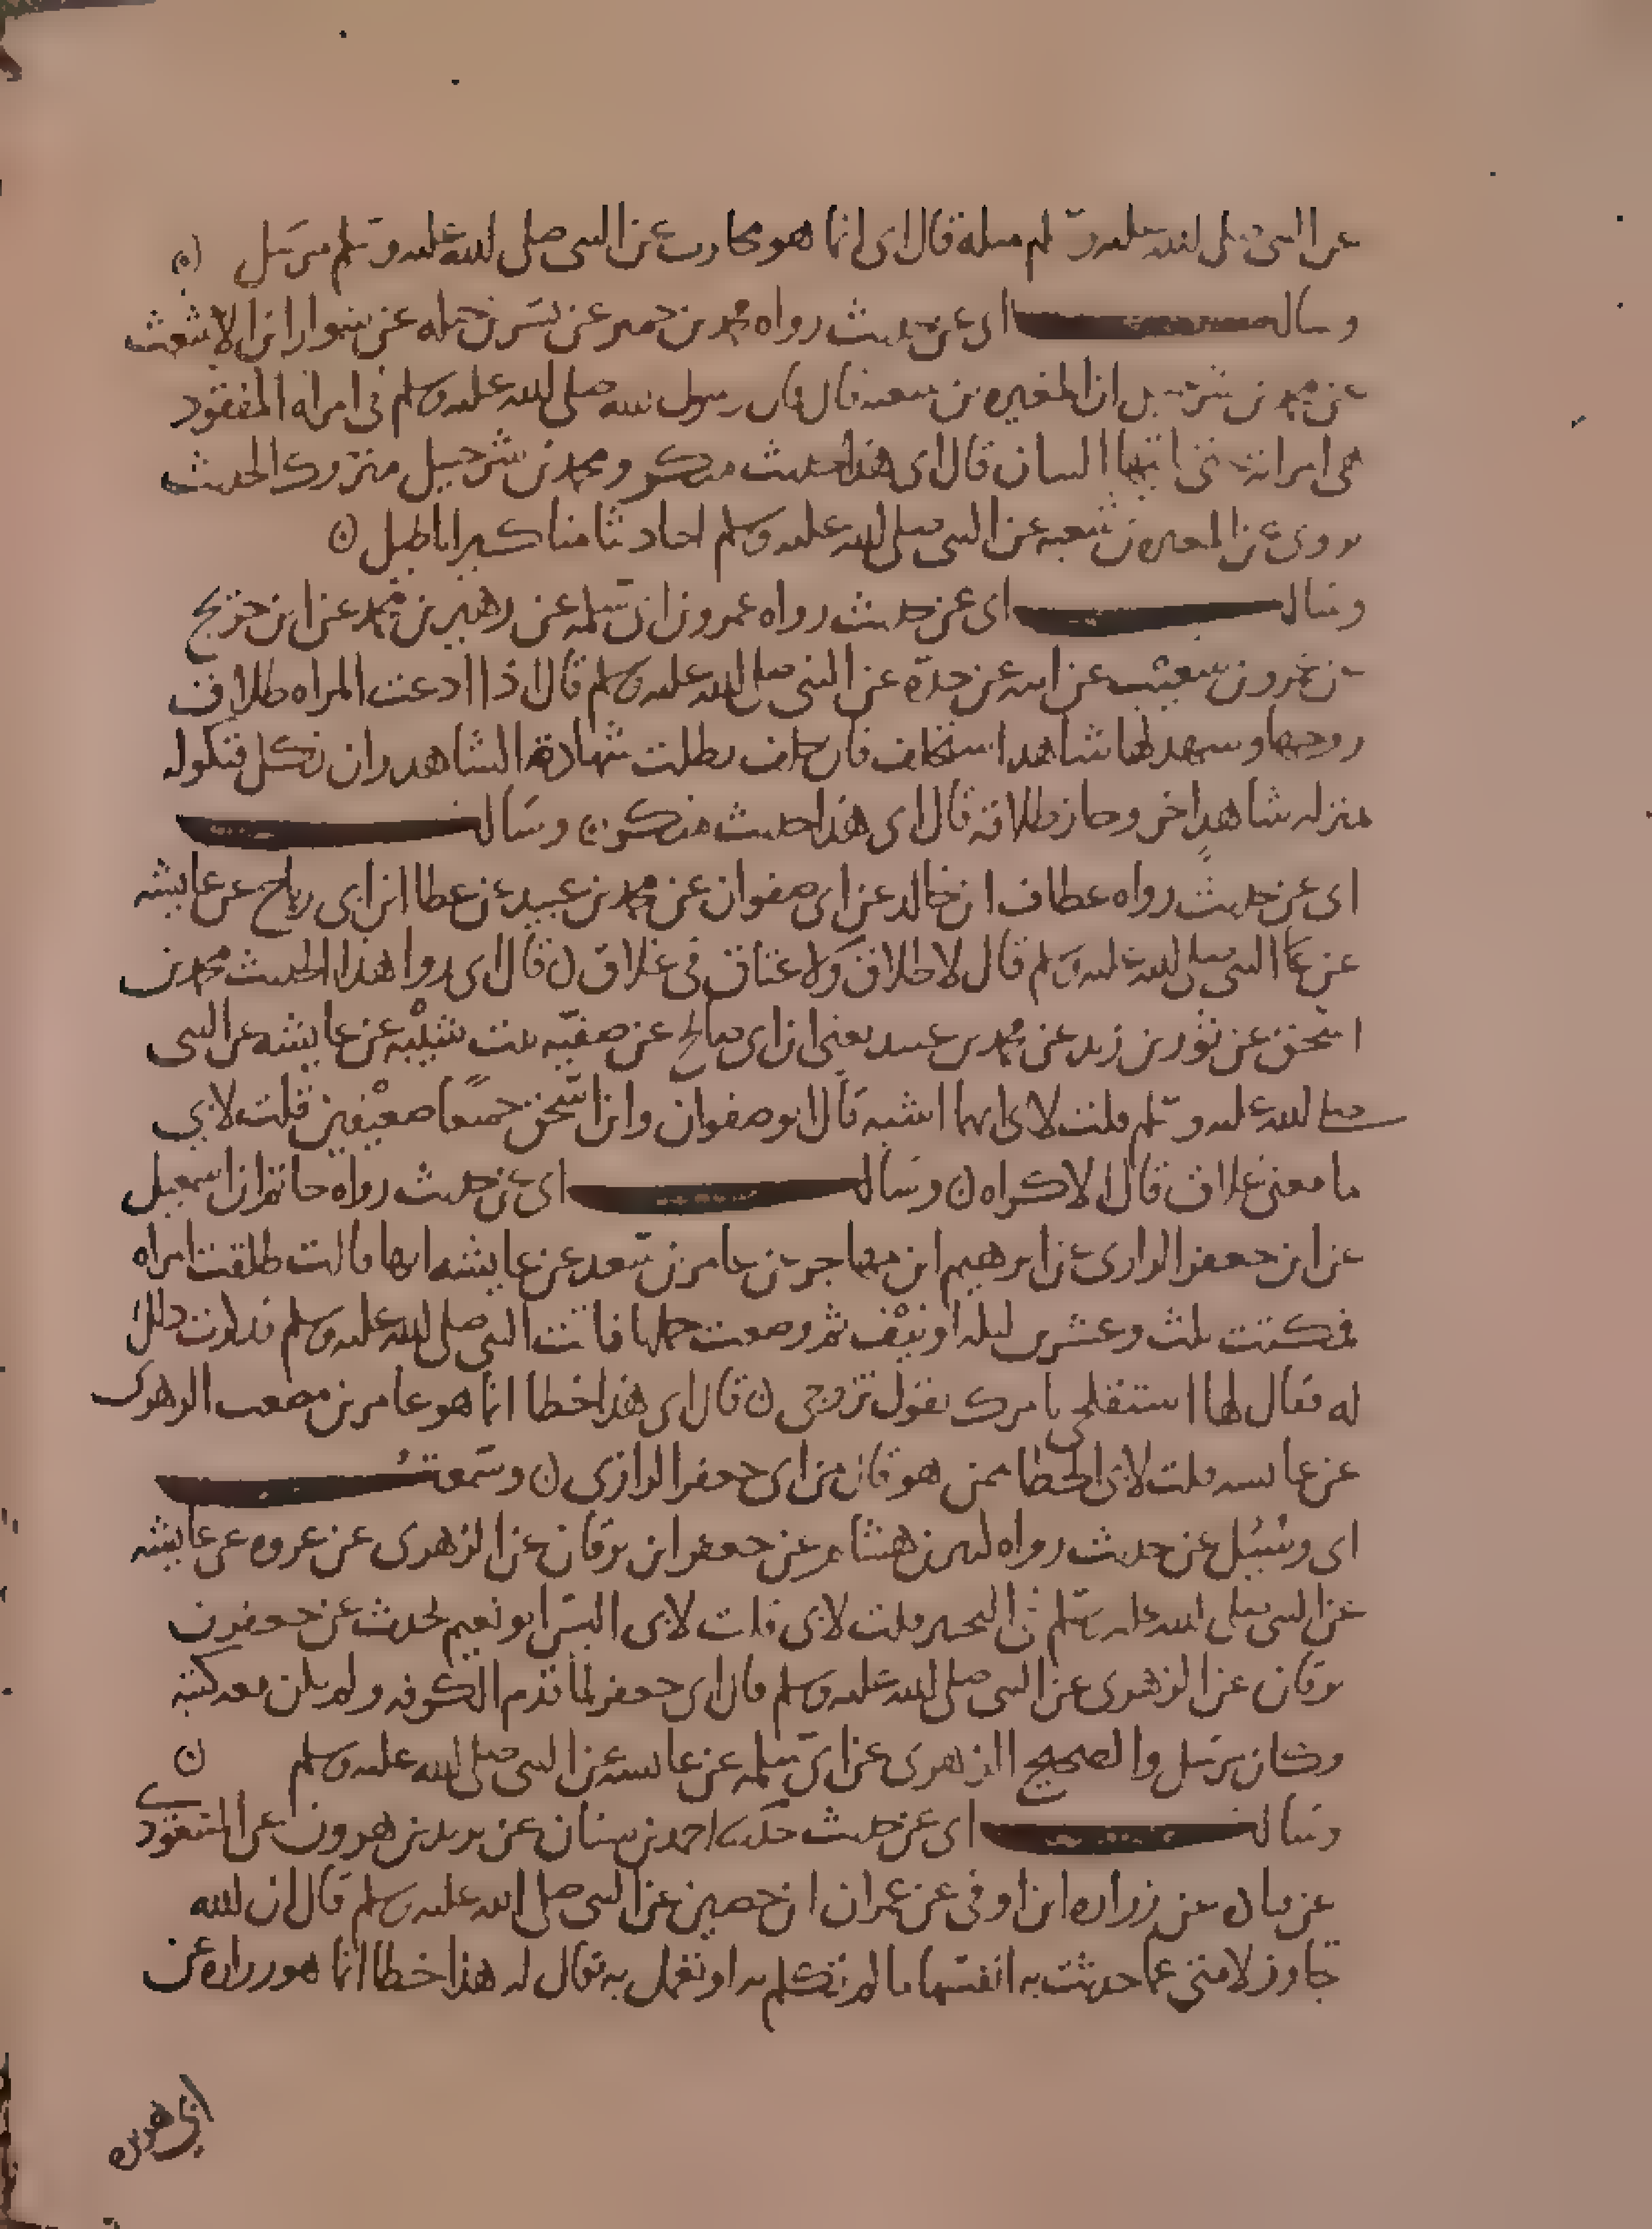 عن النبي صلى الله عليه وسلم مثله قال ابي انما هو محارب عن النبي صلى الله عليه وسلم مرسل ن
وسالت ابي عن حديث رواه محمد بن حمير عن بشر بن جبله عن سوار ابن الاشعث
عن محمد بن شرحبيل ان المغيره بن شعبه قال قال رسول الله صلى الله عليه وسلم في امراه المفقود
هي امراته حتى ياتيها البيان قال ابي هذا حديث منكر ومحمد بن شرحبيل متروك الحديث
يروي عن المغيره بن شعبه عن النبي صلى الله عليه وسلم احاديثا مناكير اباطيل ن
وسالت ابي عن حديث رواه عمرو بن ابي سلمه عن زهير بن محمد عن ابن جريج
عن عمرو بن شعيب عن ابيه عن جده عن النبي صلى الله عليه وسلم قال اذا ادعت المراه طلاق
زوجها وشهد لها شاهد استحلف فان حلف بطلت شهادة الشاهد وان نكل فنكوله
منزله شاهد اخر وجاز طلاقه قال ابي هذا حديث منكر ن وسالت
ابي عن حديث رواه عطاف ابن خالد عن ابي صفوان عن محمد بن عبيد عن عطا ابن ابي رباح عن عايشه
عن النبي صلى الله عليه وسلم قال لا طلاق ولا عتاق في غلاق ن قال ابي روا هذا الحديث محمد بن
اسحق عن ثور بن زيد عن محمد بن عبيد يعني ابن ابي صالح عن صفيه بنت شيبه عن عايشه عن النبي
صلى الله عليه وسلم قلت لابي ايهما اشبه قال ابو صفوان وابن اسحق جميعا ضعيفين قلت لابي
ما معنى غلاق قال الاكراه ن وسالت ابي عن حديث رواه حاتم ابن اسمعيل
عن ابن جعفر الرازي عن ابرهيم ابن مهاجر عن عامر بن سعد عن عايشه انها قالت طلقت امراه
فمكثت ثلث وعشرين ليله او نيف ثم وضعت حملها فاتت النبي صلى الله عليه وسلم فذكرت ذلك
له فقال لها استفلحي بامرك يقول تزوجي ن قال ابي هذا خطا انما هو عامر بن مصعب الزهري
عن عايشه قلت لابي الخطا ممن هو قال من ابي جعفر الرازي ن وسمعت
ابي وسيل عن حديث رواه كثير بن هشام عن جعفر ابن برقان عن الزهري عن عروه عن عايشه
عن النبي صلى الله عليه وسلم في التخيير قلت لابي قلت لابي اليس ابو نعيم يحدث عن جعفر بن
برقان عن الزهري عن النبي صلى الله عليه وسلم قال ابي جعفر لما قدم الكوفه ولم يكن معه كتبه
وكان يرسل والصحيح الزهري عن ابي سلمه عن عايشه عن النبي صلى الله عليه وسلم ن
وسالت ابي عن حديث احمد بن سنان عن يزيد بن هرون عن المسعودي
عن زراره ابن اوفى عن عمران ابن حصين عن النبي صلى الله عليه وسلم قال ان الله
تجاوز لامتي عما حدثت به انفسها ما لم تكلم به او تعمل به يقال له هذا خطا انما هو زراره عن
ابي هريره